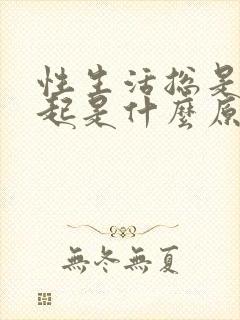 性生活总是
起是什麼原
無冬無夏